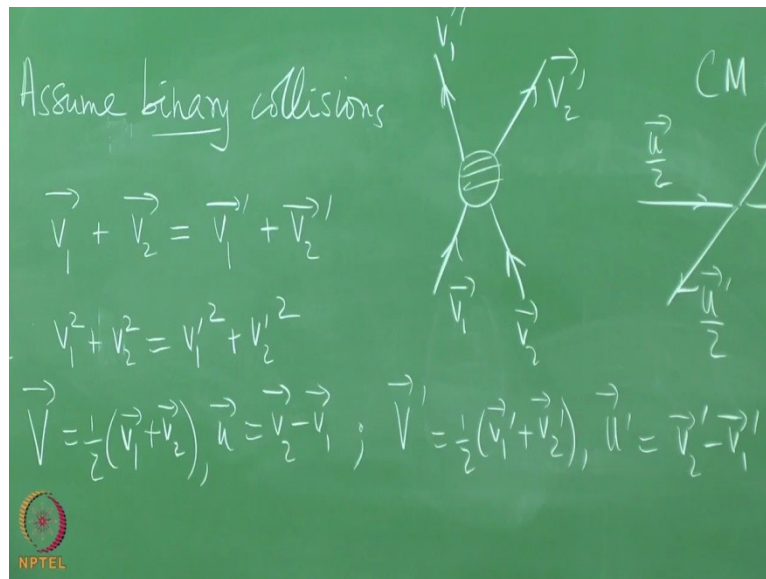 Assume binary collisions
v⃗₁ + v⃗₂ = v⃗₁′ + v⃗₂′
v₁² + v₂² = v₁′² + v₂′²
V⃗ = ½(v⃗₁ + v⃗₂), u⃗ = v⃗₂ − v⃗₁ ; V⃗′ = ½(v⃗₁′ + v⃗₂′), u⃗′ = v⃗₂′ − v⃗₁′
v⃗₁′
v⃗₂′
v⃗₁
v⃗₂
CM
u⃗/2
u⃗′/2
NPTEL